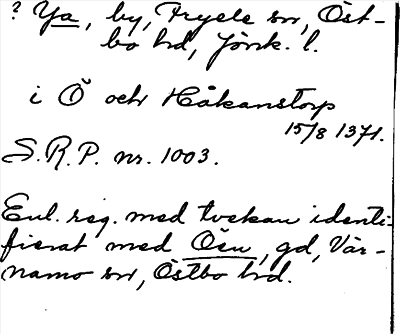 ? Ya, by, Fryele sn, Öst-
bo hd, Jönk. l.
i Ö och Håkanstorp
15/8 1371.
S.R.P. nr. 1003.
Enl. reg. med tvekan identi-
fierat med Ösn, gd, Vär-
namo sn, Östbo hd.